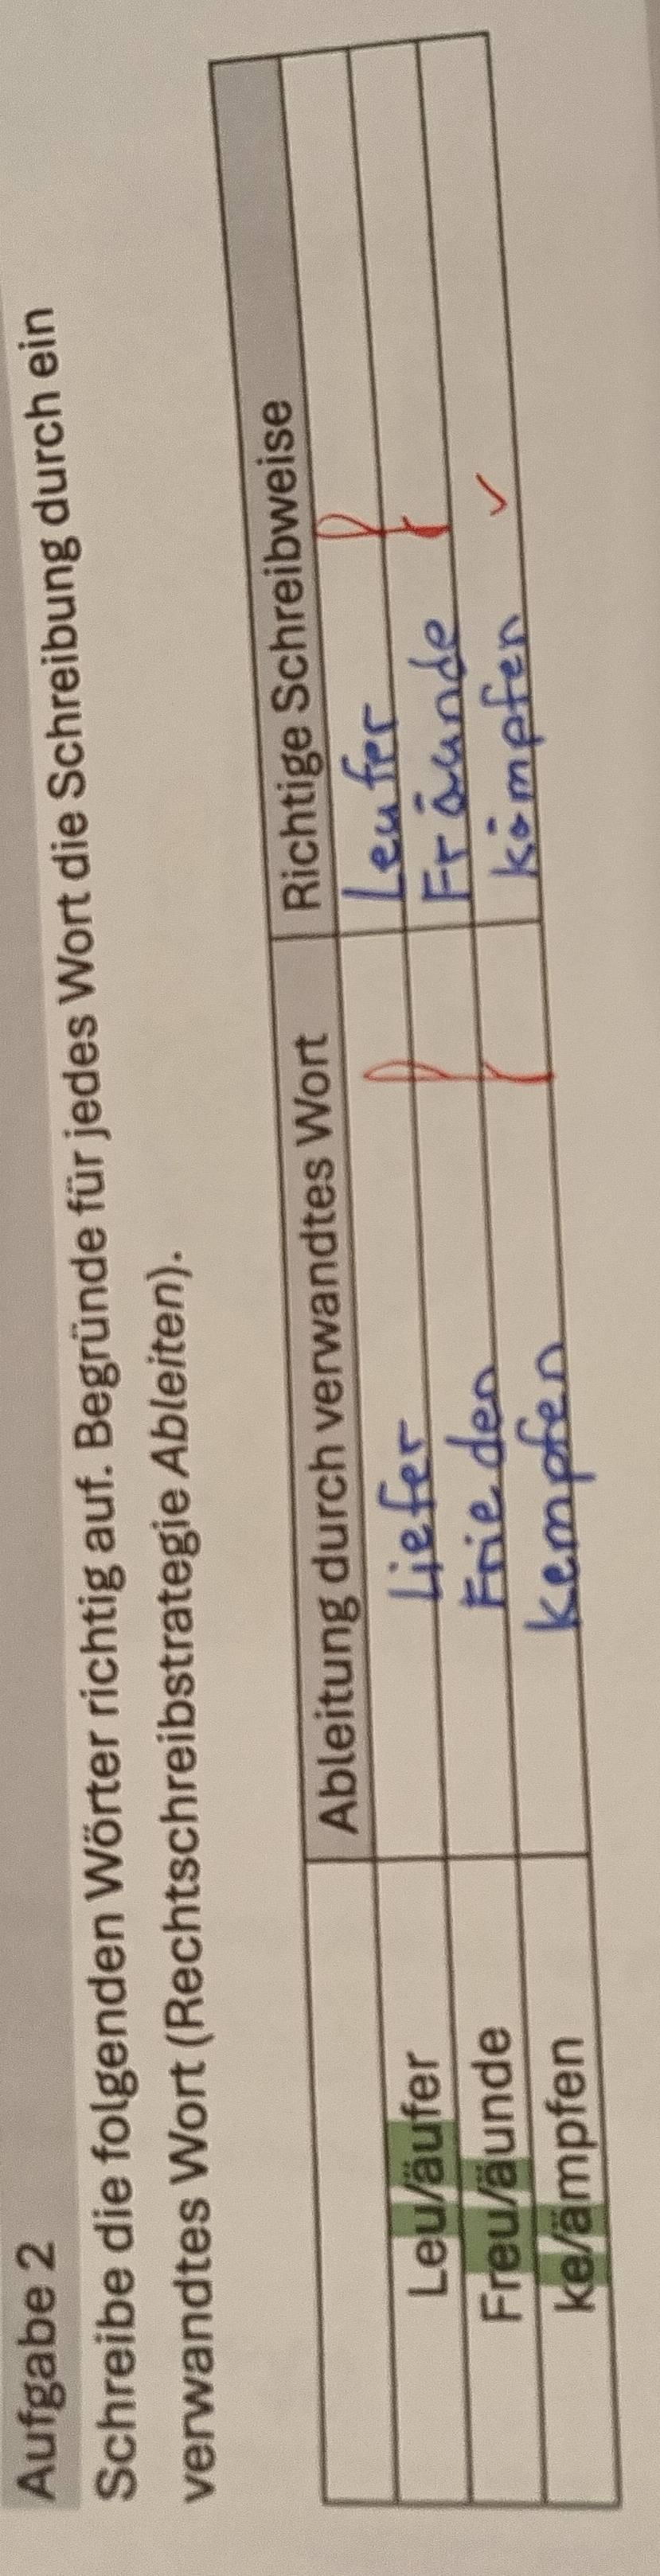 Aufgabe 2
Schreibe die folgenden Wörter richtig auf. Begründe für jedes Wort die Schreibung durch ein
verwandtes Wort (Rechtschreibstrategie Ableiten).
Ableitung durch verwandtes Wort Richtige Schreibweise
Leu/äufer Liefer Leufer
Freu/äunde Frieden Fräunde
ke/ämpfen kempfen kämpfen